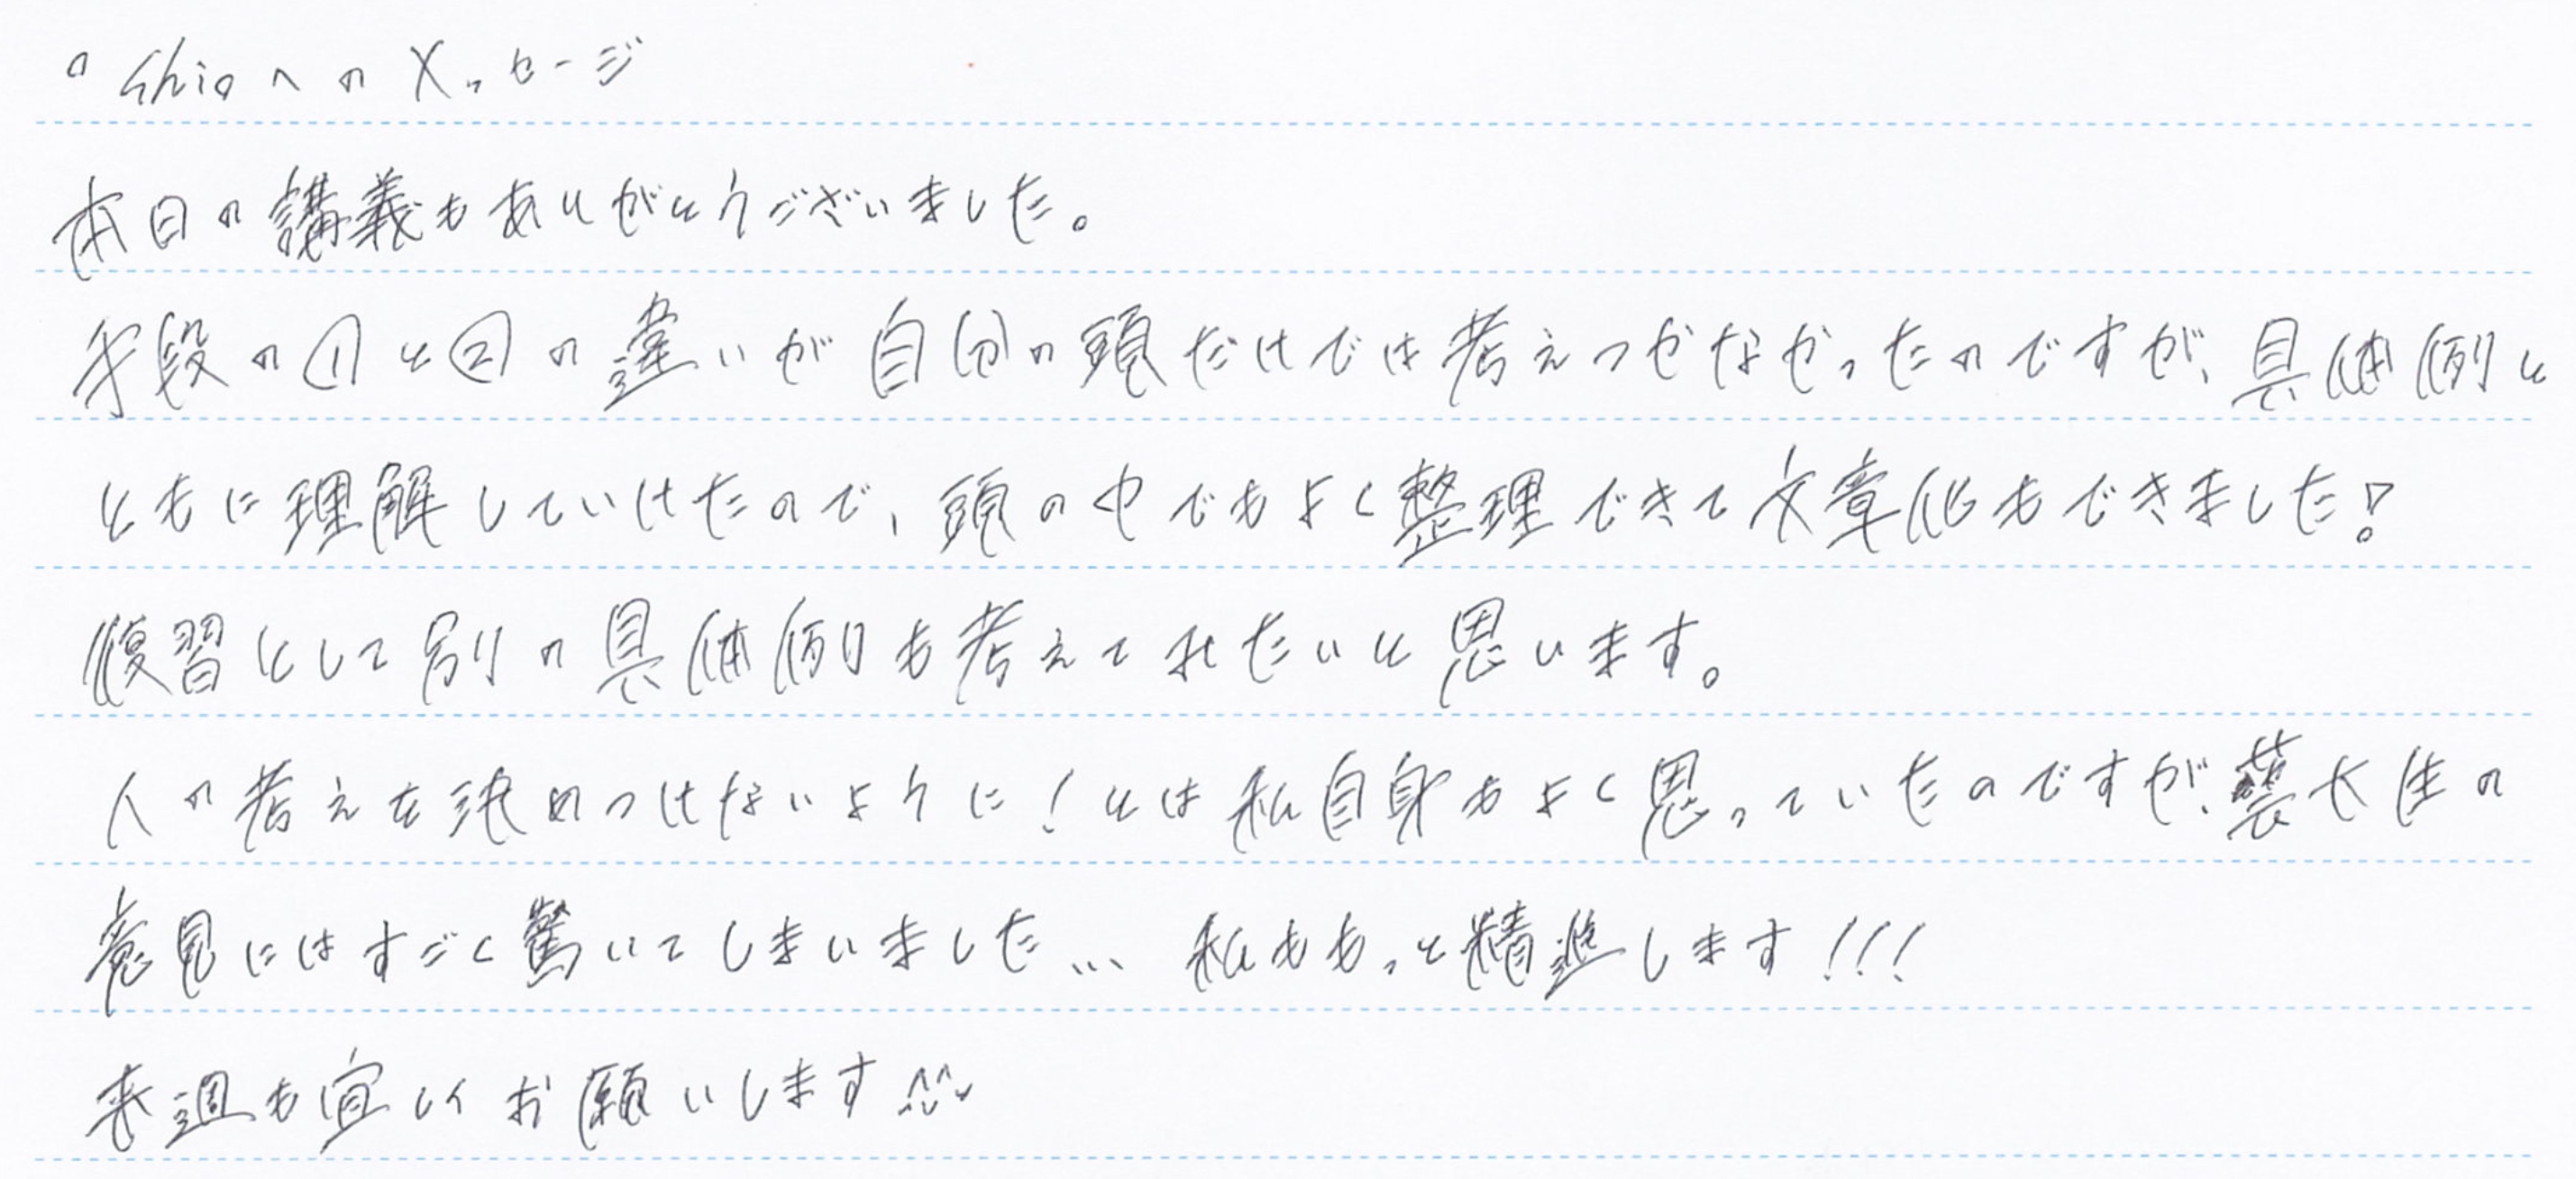 ° Shioへのメッセージ
本日の講義もありがとうございました。
手段の①と②の違いが自分の頭だけでは考えつかなかったのですが、具体例と
ともに理解していけたので、頭の中でもよく整理できて文章化もできました!
復習として別の具体例も考えてみたいと思います。
人の考えを決めつけないように!とは私自身もよく思っていたのですが、藝大生の
意見にはすごく驚いてしまいました... 私ももっと精進します!!!
来週も宜しくお願いします^^